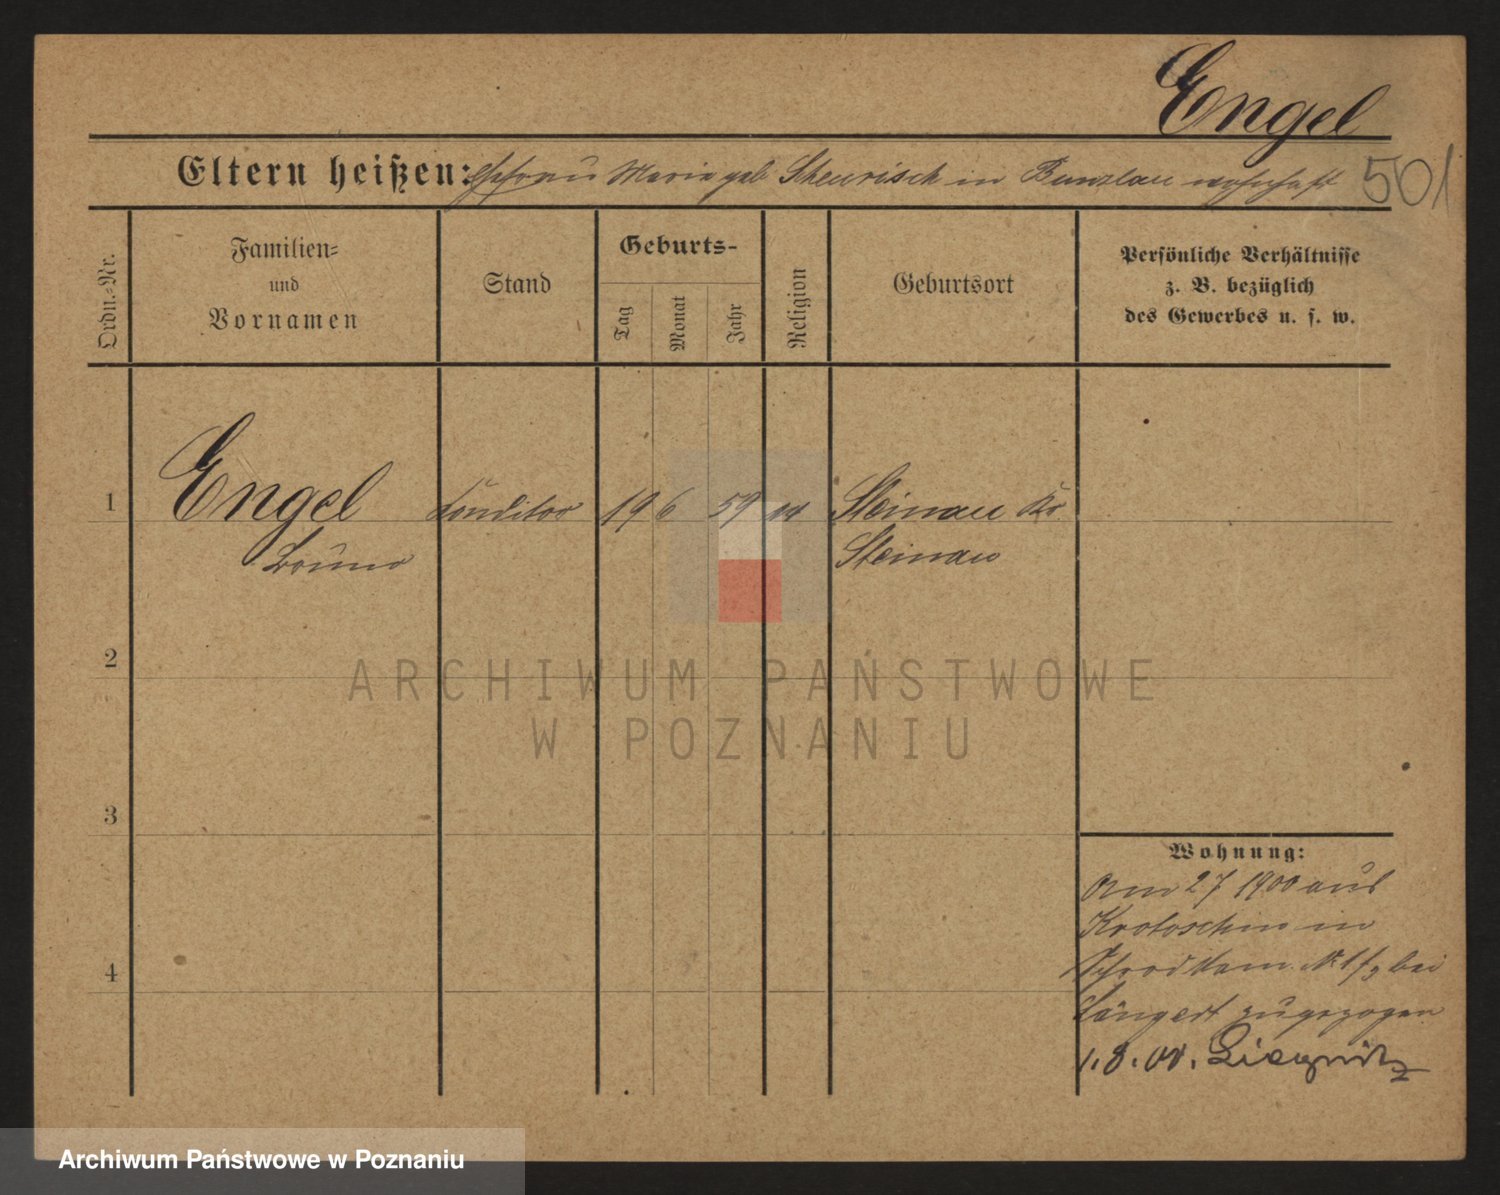 Engel
Eltern heißen: Ehefrau Maria geb Scheurisch in Bunzlau wohnhaft
501
Ordn.-Nr.
Familien-
und
Vornamen
Stand
Geburts-
Tag
Monat
Jahr
Religion
Geburtsort
Persönliche Verhältnisse
z. B. bezüglich
des Gewerbes u. s. w.
1 Engel Conditor 19 6 59 Steinau Kr
Bruno Steinau
2
3
4
Wohnung:
Am 2 7 1900 aus
Krotoschin in
bei
zugezogen
1.8.00. Liegnitz
ARCHIWUM PAŃSTWOWE
W POZNANIU
Archiwum Państwowe w Poznaniu